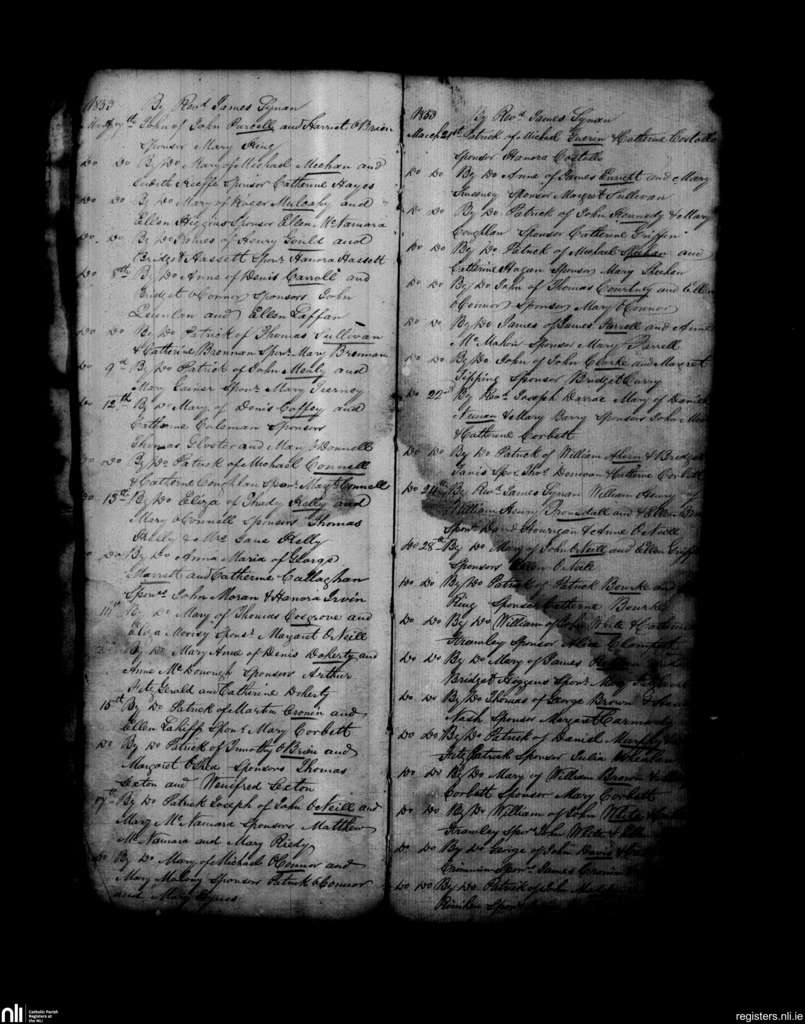 1853 By Revd James Synan
March 7th John of John Purcell and Harriet O Brien
Sponsor Mary King
Do Do By Do Mary of Michael Meehan and
Judith Keeffe Sponsor Catherine Hayes
Do Do By Do Mary of Roger Mulcahy and
Ellen Higgins Sponsor Ellen McNamara
Do Do By Do James of Henry Gould and
Bridget Hassett Sponr Hanora Hassett
Do 8th By Do Anne of Denis Carroll and
Bridget O Connor Sponsors John
and Ellen Laffan
Do Do By Do Patrick of Thomas Sullivan
& Catherine Brennan Sponr Mary Brennan
Do 9th By Do Patrick of John and
Mary Sponr Mary Tierney
Do 12th By Do Mary of Denis Caffey and
Catherine Coleman Sponsors
Thomas Gloster and Mary O Donnell
Do Do By Do Patrick of Michael Connell
& Catherine Coughlan Sponr Margt Connell
Do 13th By Do Eliza of Thady Kelly and
Mary O Connell Sponsors Thomas
Kelly & Mrs Jane Kelly
Do Do By Do Anna Maria of George
Marrett and Catherine Callaghan
Sponrs John Moran & Hanora Irvin
14th By Do Mary of Thomas Cosgrove and
Eliza Sponr Margaret O Neill
By Do Mary Anne of Denis Doherty and
Anne McDonough Sponsors Arthur
Fitz Gerald and Catherine Doherty
15th By Do Patrick of Martin Cronin and
Ellen Lahiff Sponr Mary Corbett
Do By Do Patrick of Timothy O Brien and
Margaret O Shea Sponsors Thomas
Sexton and Winifred Sexton
17th By Do Patrick Joseph of John O Neill and
Mary McNamara Sponsors Matthew
McNamara and Mary Reidy
Do By Do Mary of Michael O Connor and
Mary Malony Sponsors Patrick O Connor
and Mary
1853 By Revd James Synan
March 21st Patrick of Michael Guerin & Catherine Costello
Sponsor Hanora Costello
Do Do By Do Anne of James and Mary
Sweeney Sponsor Margt Sullivan
Do Do By Do Patrick of John Kennedy & Mary
Coughlan Sponsor Catherine Griffin
Do Do By Do Patrick of Michael Sheehan and
Catherine Hogan Sponsor Mary Sheehan
Do Do By Do John of Thomas Courtney and Ellen
O Connor Sponsor Mary O Connor
Do Do By Do James of James Farrell and Anne
McMahon Sponsor Mary Farrell
Do Do By Do John of John Clarke and Margret
Tipping Sponsor Bridget Curry
Do 22nd By Revd Joseph Mary of Daniel
& Mary Barry Sponsors John
& Catherine Corbett
Do Do By Do Patrick of William Ahern & Bridget
Davis Spors Thos Donovan & Catherine Corbett
Do 24th By Revd James Synan William Henry of
William Henry and Ellen
Sponrs David Hourigan & Anne O Neill
Do 28th By Do Mary of John O Neill and Ellen
Sponsors Ellen O Neill
Do Do By Do Patrick of Patrick Bourke and
King Sponsor Catherine Bourke
Do Do By Do William of John White & Catherine
Frawley Sponsor Alice
Do Do By Do Mary of James
Bridget Higgins Sponr Mary
Do Do By Do Thomas of George Brown &
Nash Sponsor Margaret Carmody
Do Do By Do Patrick of Daniel Murphy
Fitz Patrick Sponsor Julia
Do Do By Do Mary of William Brown &
Corbett Sponsor Mary Corbett
Do Do By Do William of John White &
Frawley Sponr John White & Ellen
Do Do By Do George of John Davis &
Sponr James Cronin
Do Do By Do Patrick of John
Sponr
nli
Catholic Parish
Registers at
the NLI
registers.nli.ie